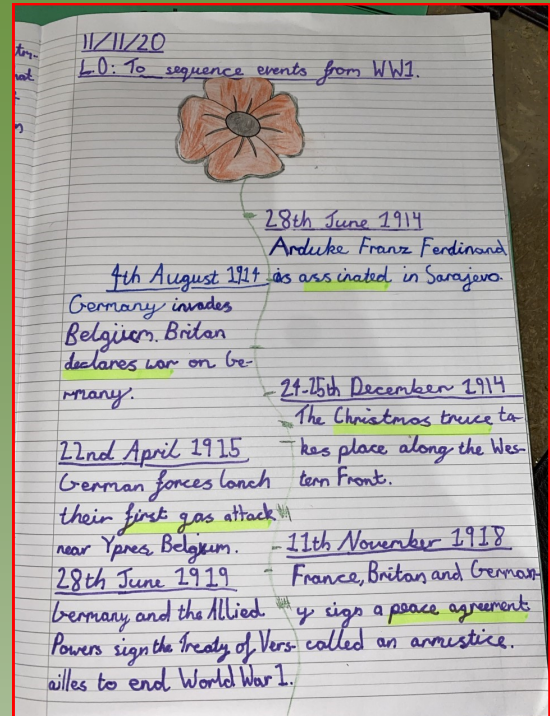 11/11/20
L.O: To sequence events from WW1.
28th June 1914
Arduke Franz Ferdinand
is assinated in Sarajevo.
4th August 1914
Germany invades
Belgiium. Britan
declares war on Ge-
rmany.
24-25th December 1914
The Christmas truce ta-
kes place along the Wes-
tern Front.
22nd April 1915
German forces lanch
their first gas attack
near Ypres, Belgium.
11th November 1918
France, Britan and German-
y sign a peace agreement
called an armestice.
28th June 1919
Germany and the Allied
Powers sign the Treaty of Vers-
ailles to end World War 1.